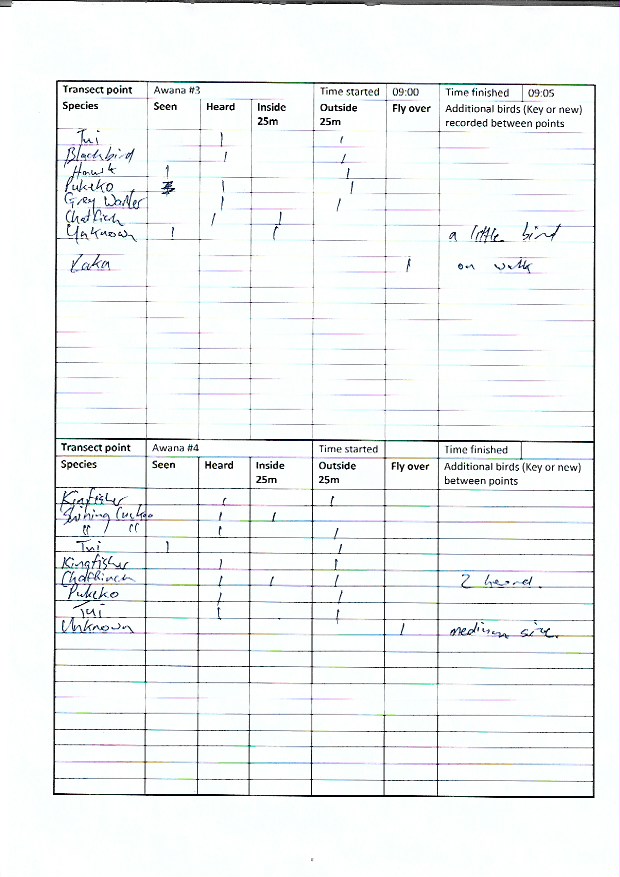 Transect point Awana #3 Time started 09:00 Time finished 09:05
Species Seen Heard Inside 25m Outside 25m Fly over Additional birds (Key or new) recorded between points
Tui | |
Blackbird | |
Hawk | |
Pukeko | |
Grey Warbler | |
Chaffinch | |
Unknown | | a little bird
Kaka | on walk
Transect point Awana #4 Time started Time finished
Species Seen Heard Inside 25m Outside 25m Fly over Additional birds (Key or new) between points
Kingfisher | |
Shining Cuckoo | |
" / " | |
Tui | |
Kingfisher | |
Chaffinch | | | 2 heard.
Pukeko | |
Tui | |
Unknown | medium size.